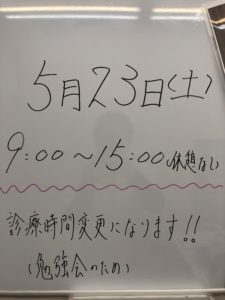 5月23日(土)
9:00～15:00(休憩なし)
診療時間変更になります!!
(勉強会のため)